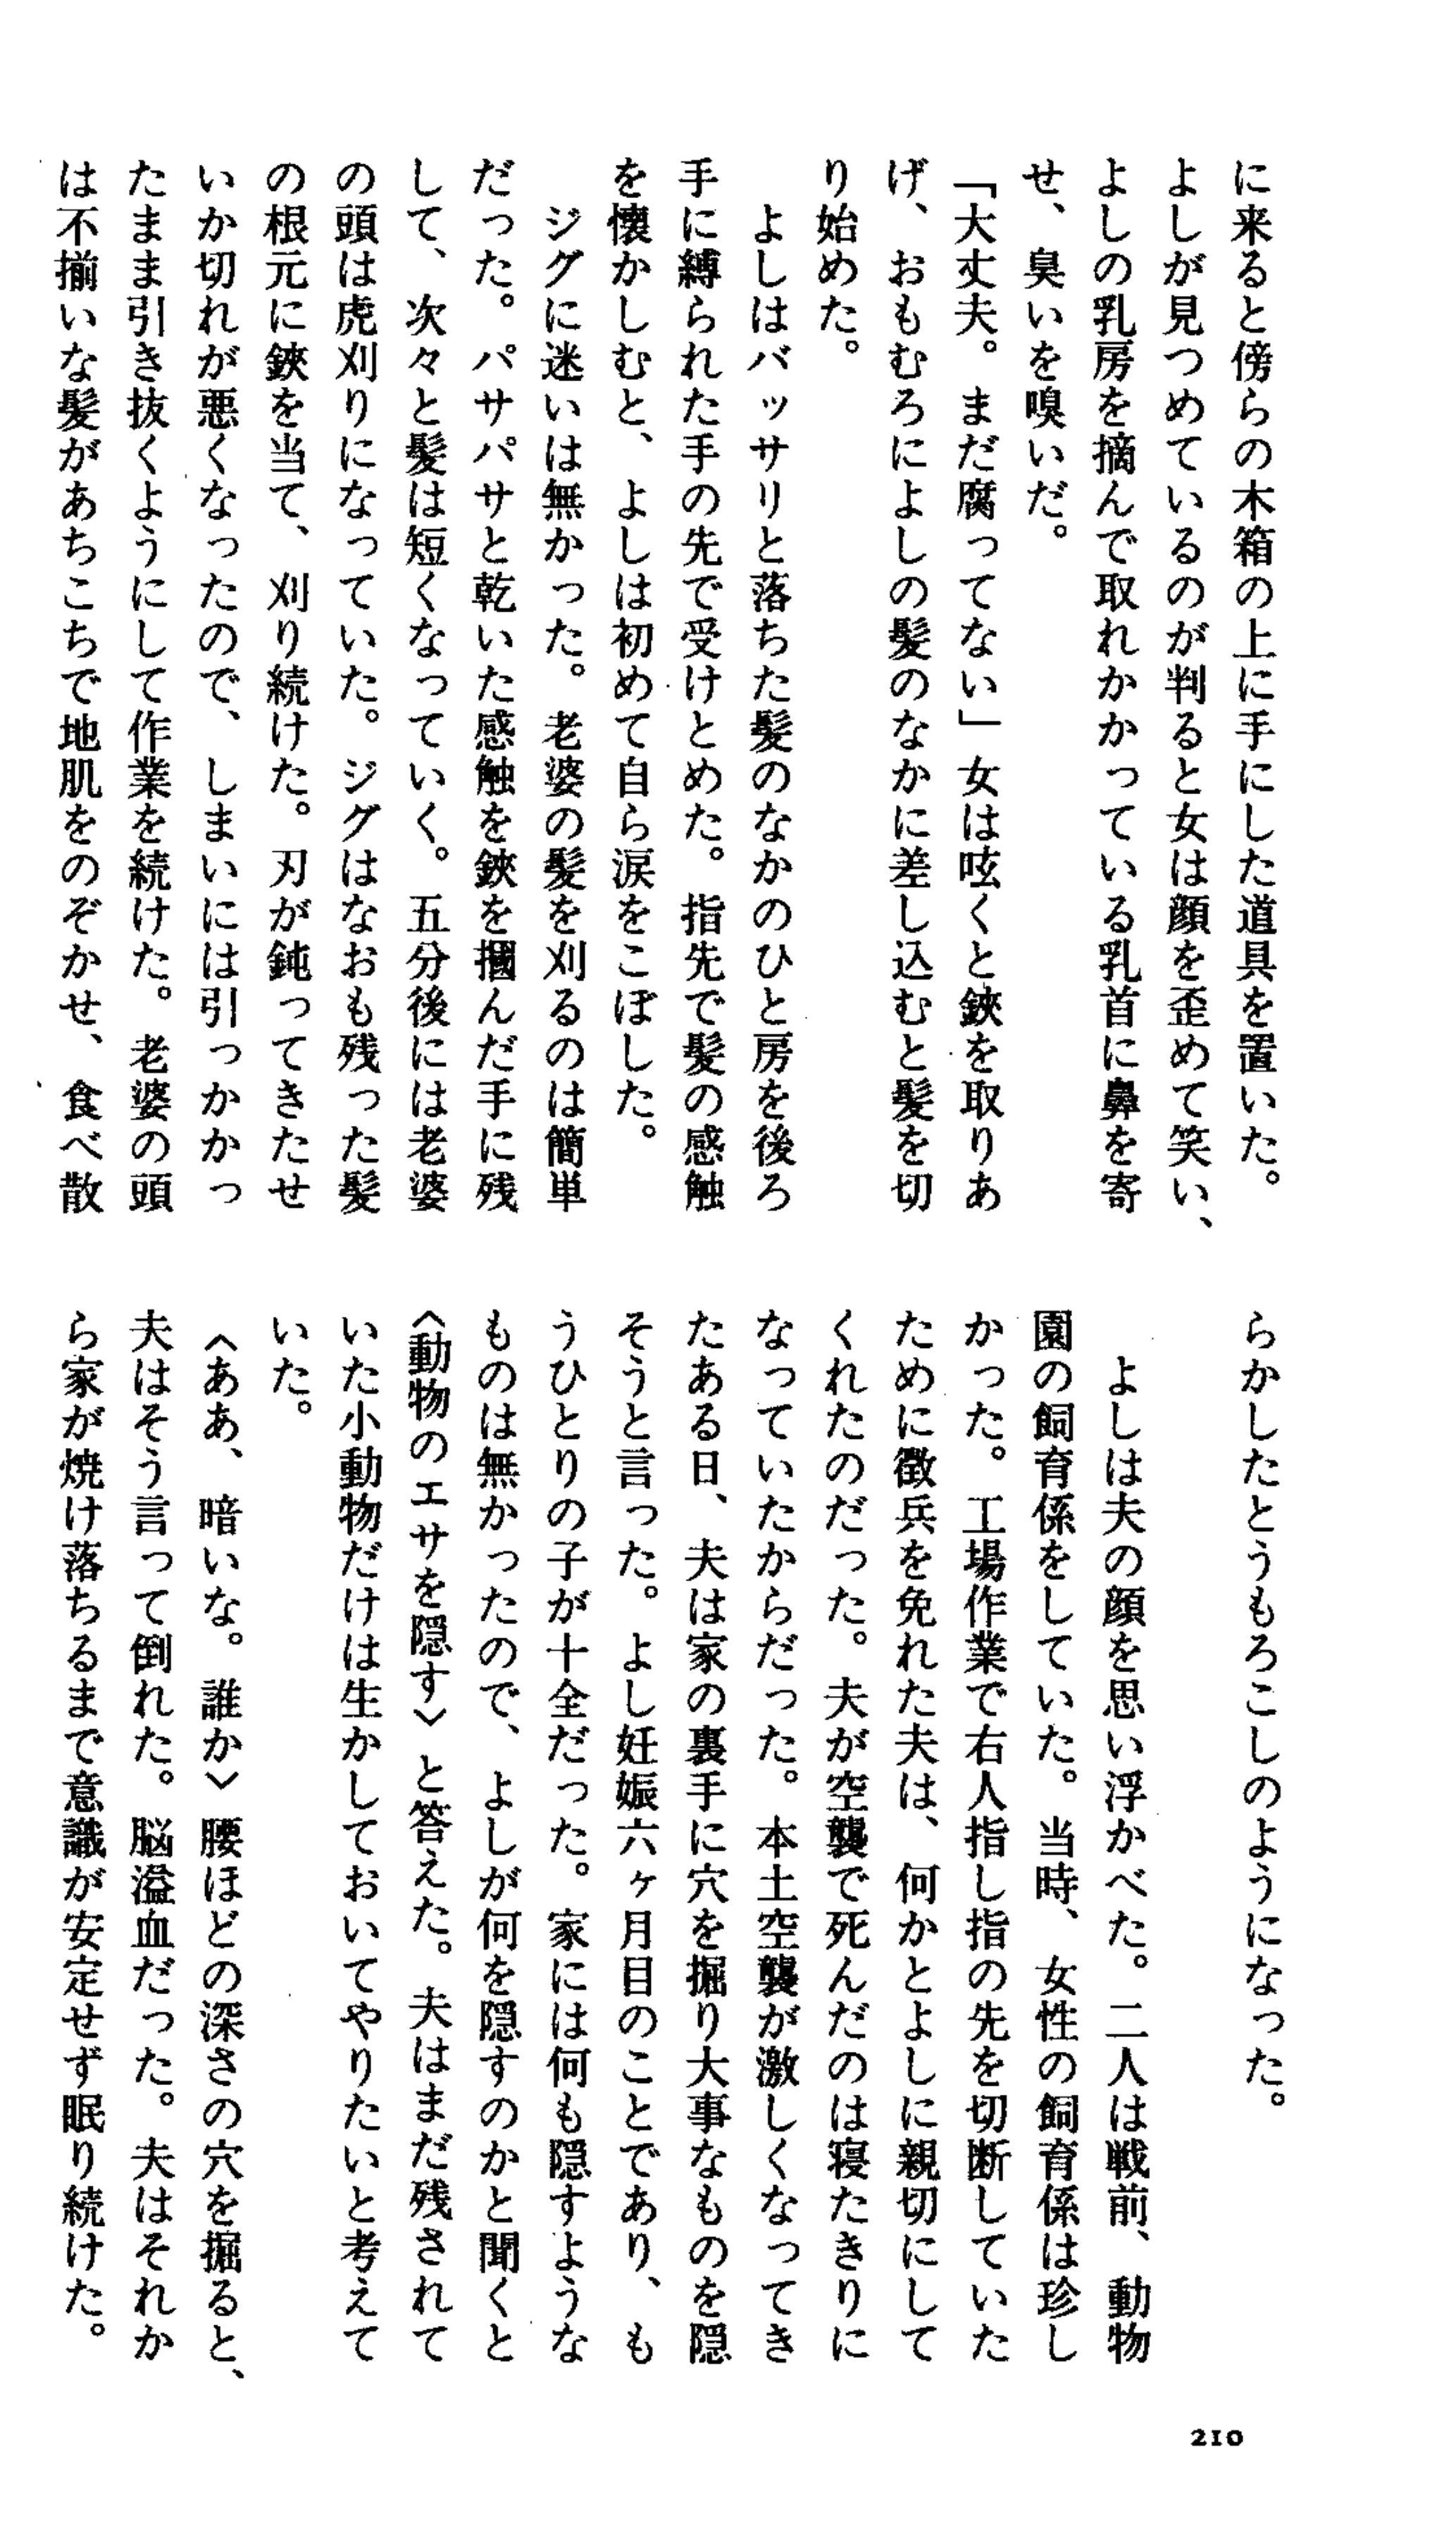 に来ると傍らの木箱の上に手にした道具を置いた。
よしが見つめているのが判ると女は顔を歪めて笑い、
よしの乳房を摘んで取れかかっている乳首に鼻を寄
せ、臭いを嗅いだ。
「大丈夫。まだ腐ってない」女は呟くと鋏を取りあ
げ、おもむろによしの髪のなかに差し込むと髪を切
り始めた。
よしはバッサリと落ちた髪のなかのひと房を後ろ
手に縛られた手の先で受けとめた。指先で髪の感触
を懐かしむと、よしは初めて自ら涙をこぼした。
ジグに迷いは無かった。老婆の髪を刈るのは簡単
だった。パサパサと乾いた感触を鋏を摑んだ手に残
して、次々と髪は短くなっていく。五分後には老婆
の頭は虎刈りになっていた。ジグはなおも残った髪
の根元に鋏を当て、刈り続けた。刃が鈍ってきたせ
いか切れが悪くなったので、しまいには引っかかっ
たまま引き抜くようにして作業を続けた。老婆の頭
は不揃いな髪があちこちで地肌をのぞかせ、食べ散
らかしたとうもろこしのようになった。
よしは夫の顔を思い浮かべた。二人は戦前、動物
園の飼育係をしていた。当時、女性の飼育係は珍し
かった。工場作業で右人指し指の先を切断していた
ために徴兵を免れた夫は、何かとよしに親切にして
くれたのだった。夫が空襲で死んだのは寝たきりに
なっていたからだった。本土空襲が激しくなってき
たある日、夫は家の裏手に穴を掘り大事なものを隠
そうと言った。よし妊娠六ヶ月目のことであり、も
うひとりの子が十全だった。家には何も隠すような
ものは無かったので、よしが何を隠すのかと聞くと
〈動物のエサを隠す〉と答えた。夫はまだ残されて
いた小動物だけは生かしておいてやりたいと考えて
いた。
〈ああ、暗いな。誰か〉腰ほどの深さの穴を掘ると、
夫はそう言って倒れた。脳溢血だった。夫はそれか
ら家が焼け落ちるまで意識が安定せず眠り続けた。
210